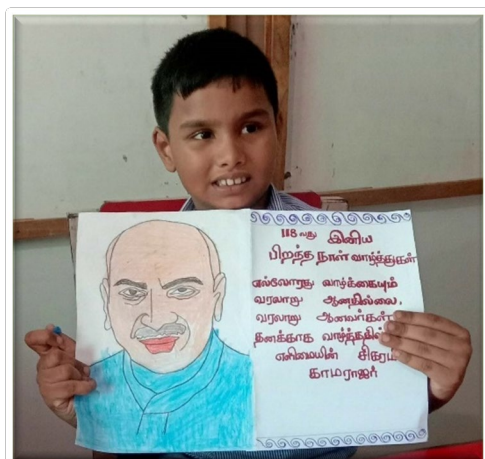 118 வது இனிய
பிறந்த நாள் வாழ்த்துகள்
எல்லோரது வாழ்க்கையும்
வரலாறு ஆனதில்லை,
வரலாறு ஆனவர்கள்
தனக்காக
எளிமையின் சிகரம்
காமராஜர்